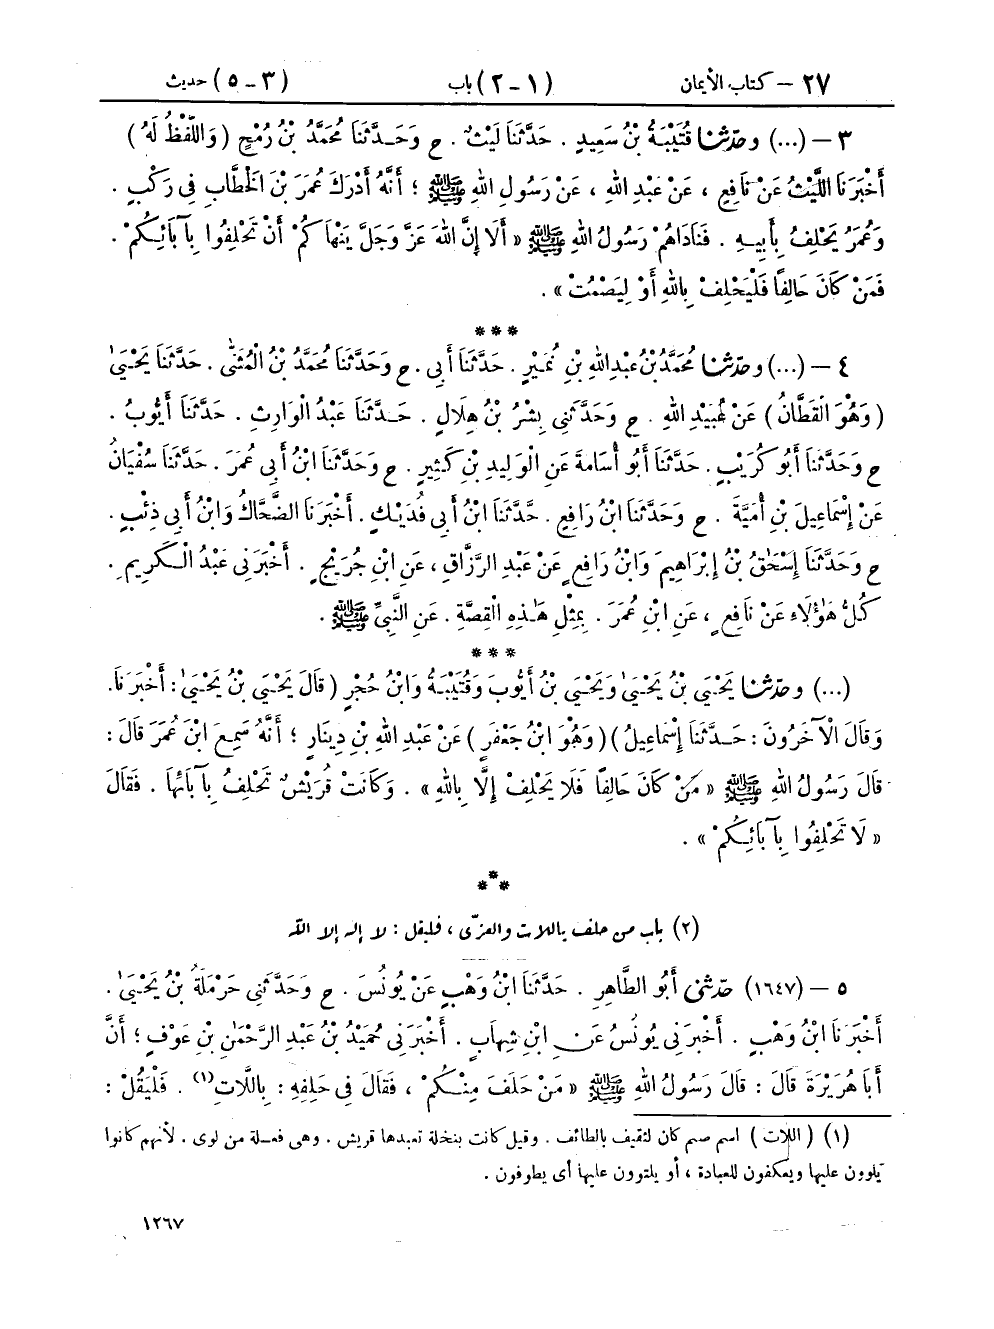 ٢٧ – كتاب الأيمان (١ – ٢) باب (٣ – ٥) حديث
٣ – (...) وحَدَّثَنَا قُتَيْبَةُ بْنُ سَعِيدٍ . حَدَّثَنَا لَيْثٌ . ح وَحَدَّثَنَا مُحَمَّدُ بْنُ رُمْحٍ ( وَاللَّفْظُ لَهُ )
أَخْبَرَنَا اللَّيْثُ عَنْ نَافِعٍ ، عَنْ عَبْدِ اللهِ ، عَنْ رَسُولِ اللهِ ﷺ ؛ أَنَّهُ أَدْرَكَ عُمَرَ بْنَ الْخَطَّابِ فِي رَكْبٍ .
وَعُمَرُ يَحْلِفُ بِأَبِيهِ . فَنَادَاهُمْ رَسُولُ اللهِ ﷺ « أَلَا إِنَّ اللهَ عَزَّ وَجَلَّ يَنْهَاكُمْ أَنْ تَحْلِفُوا بِآبَائِكُمْ .
فَمَنْ كَانَ حَالِفًا فَلْيَحْلِفْ بِاللهِ أَوْ لِيَصْمُتْ » .
***
٤ – (...) وحَدَّثَنَا مُحَمَّدُ بْنُ عَبْدِ اللهِ بْنِ نُمَيْرٍ . حَدَّثَنَا أَبِي . ح وَحَدَّثَنَا مُحَمَّدُ بْنُ الْمُثَنَّى . حَدَّثَنَا يَحْيَىٰ
( وَهُوَ الْقَطَّانُ ) عَنْ عُبَيْدِ اللهِ . ح وَحَدَّثَنِي بِشْرُ بْنُ هِلَالٍ . حَدَّثَنَا عَبْدُ الْوَارِثِ . حَدَّثَنَا أَيُّوبُ .
ح وَحَدَّثَنَا أَبُو كُرَيْبٍ . حَدَّثَنَا أَبُو أُسَامَةَ عَنِ الْوَلِيدِ بْنِ كَثِيرٍ . ح وَحَدَّثَنَا ابْنُ أَبِي عُمَرَ . حَدَّثَنَا سُفْيَانُ
عَنْ إِسْمَاعِيلَ بْنِ أُمَيَّةَ . ح وَحَدَّثَنَا ابْنُ رَافِعٍ . حَدَّثَنَا ابْنُ أَبِي فُدَيْكٍ . أَخْبَرَنَا الضَّحَّاكُ وَابْنُ أَبِي ذِئْبٍ .
ح وَحَدَّثَنَا إِسْحَٰقُ بْنُ إِبْرَاهِيمَ وَابْنُ رَافِعٍ عَنْ عَبْدِ الرَّزَّاقِ ، عَنِ ابْنِ جُرَيْجٍ . أَخْبَرَنِي عَبْدُ الْكَرِيمِ .
كُلُّ هَٰؤُلَاءِ عَنْ نَافِعٍ ، عَنِ ابْنِ عُمَرَ . بِمِثْلِ هَٰذِهِ الْقِصَّةِ . عَنِ النَّبِيِّ ﷺ .
***
(...) وحَدَّثَنَا يَحْيَى بْنُ يَحْيَىٰ وَيَحْيَى بْنُ أَيُّوبَ وَقُتَيْبَةُ وَابْنُ حُجْرٍ ( قَالَ يَحْيَى بْنُ يَحْيَىٰ : أَخْبَرَنَا .
وَقَالَ الْآخَرُونَ : حَدَّثَنَا إِسْمَاعِيلُ ) ( وَهُوَ ابْنُ جَعْفَرٍ ) عَنْ عَبْدِ اللهِ بْنِ دِينَارٍ ؛ أَنَّهُ سَمِعَ ابْنَ عُمَرَ قَالَ :
قَالَ رَسُولُ اللهِ ﷺ « مَنْ كَانَ حَالِفًا فَلَا يَحْلِفْ إِلَّا بِاللهِ » . وَكَانَتْ قُرَيْشٌ تَحْلِفُ بِآبَائِهَا . فَقَالَ
« لَا تَحْلِفُوا بِآبَائِكُمْ » .
***
(٢) باب من حلف باللات والعزّى ، فليقل : لا إله إلا الله
٥ – (١٦٤٧) حَدَّثَنِي أَبُو الطَّاهِرِ . حَدَّثَنَا ابْنُ وَهْبٍ عَنْ يُونُسَ . ح وَحَدَّثَنِي حَرْمَلَةُ بْنُ يَحْيَىٰ .
أَخْبَرَنَا ابْنُ وَهْبٍ . أَخْبَرَنِي يُونُسُ عَنِ ابْنِ شِهَابٍ . أَخْبَرَنِي حُمَيْدُ بْنُ عَبْدِ الرَّحْمَٰنِ بْنِ عَوْفٍ ؛ أَنَّ
أَبَا هُرَيْرَةَ قَالَ : قَالَ رَسُولُ اللهِ ﷺ « مَنْ حَلَفَ مِنْكُمْ ، فَقَالَ فِي حَلِفِهِ : بِاللَّاتِ (١) . فَلْيَقُلْ :
(١) ( اللات ) اسم صنم كان لثقيف بالطائف . وقيل كانت بنخلة تعبدها قريش . وهي فعلة من لوى . لأنهم كانوا
يلوون عليها ويعكفون للعبادة ، أو يلتوون عليها أى يطوفون .
١٢٦٧